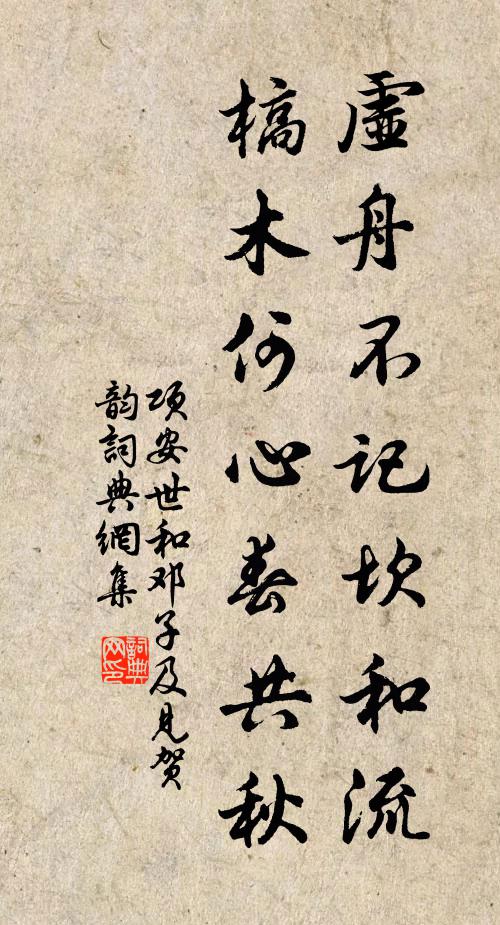 虛舟不記坎和流
槁木何心春共秋
项安世和邓子及見贺
韵詞典網集
詞典網印